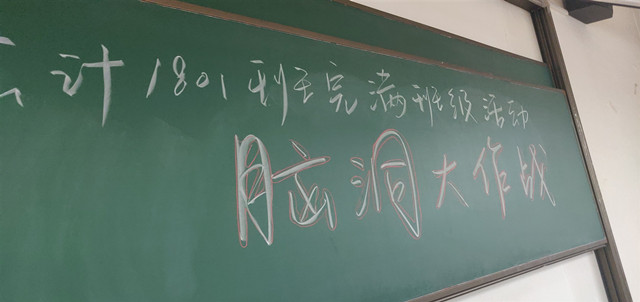 会计1801班完满班级活动
脑洞大作战